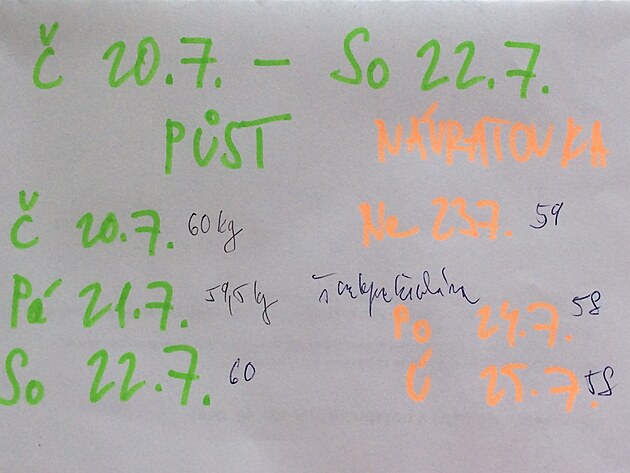 Č 20.7. – So 22.7.
PŮST NÁVRATOVKA
Č 20.7. 60 kg
Pá 21.7. 59,5 kg
So 22.7. 60
Ne 23.7. 59
Po 24.7. 58
Ú 25.7. 58